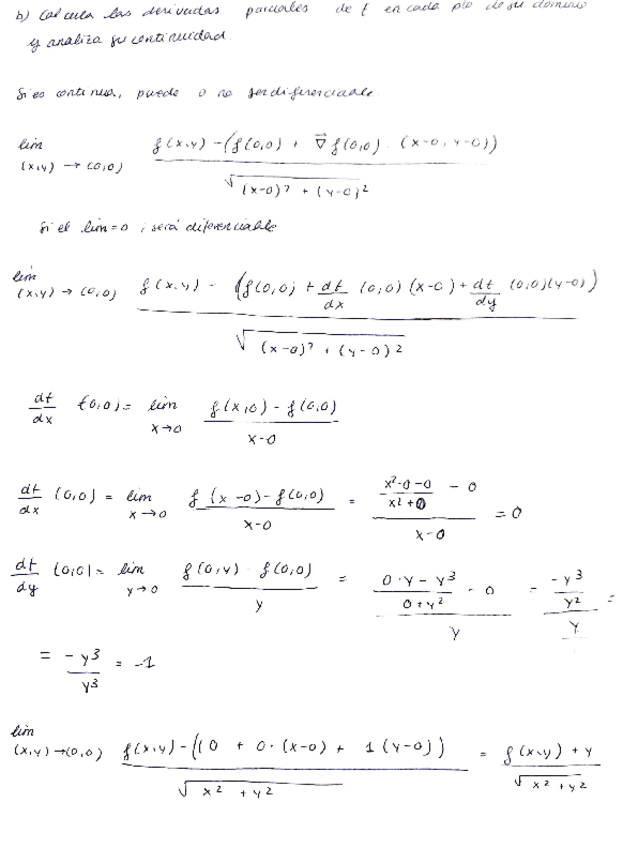 b) Calcula las derivadas parciales de f en cada pto de su dominio
y analiza su continuidad.
Si es continua, puede o no ser diferenciable
lim (x,y) → (0,0) f(x,y) - (f(0,0) + ∇⃗ f(0,0) · (x-0, y-0)) / √((x-0)² + (y-0)²)
Si el lim = 0, será diferenciable
lim (x,y) → (0,0) f(x,y) - (f(0,0) + df/dx (0,0) (x-0) + df/dy (0,0)(y-0)) / √((x-0)² + (y-0)²)
df/dx (0,0) = lim x→0 f(x,0) - f(0,0) / x-0
df/dx (0,0) = lim x→0 f(x-0) - f(0,0) / x-0 = ((x²·0-0)/(x²+0) - 0) / x-0 = 0
df/dy (0,0) = lim y→0 f(0,y) - f(0,0) / y = ((0·y - y³)/(0+y²) - 0) / y = (-y³/y²) / y =
= -y³/y³ = -1
lim (x,y)→(0,0) f(x,y) - ((0 + 0·(x-0) + 1(y-0)) / √(x² + y²) = f(x,y) + y / √(x² + y²)